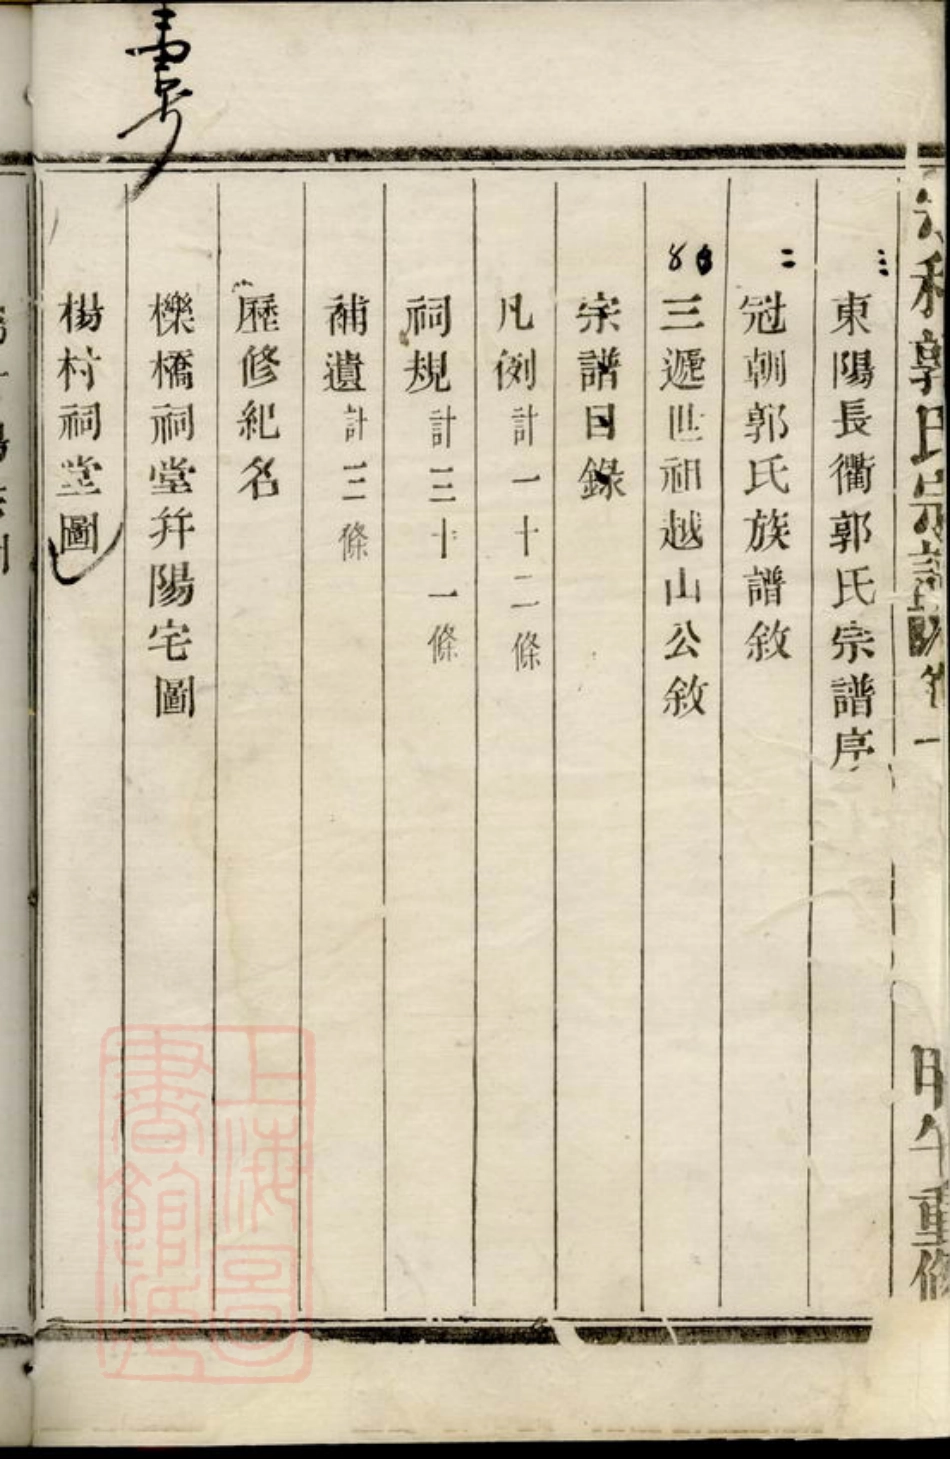 郭氏宗譜 卷一 甲午重修
東陽長衢郭氏宗譜序
冠朝郭氏族譜敘
三遞世祖越山公敘
宗譜目錄
凡例計一十二條
祠規計三十一條
補遺計三條
歷修紀名
櫟橋祠堂并陽宅圖
楊村祠堂圖
上海圖書館藏